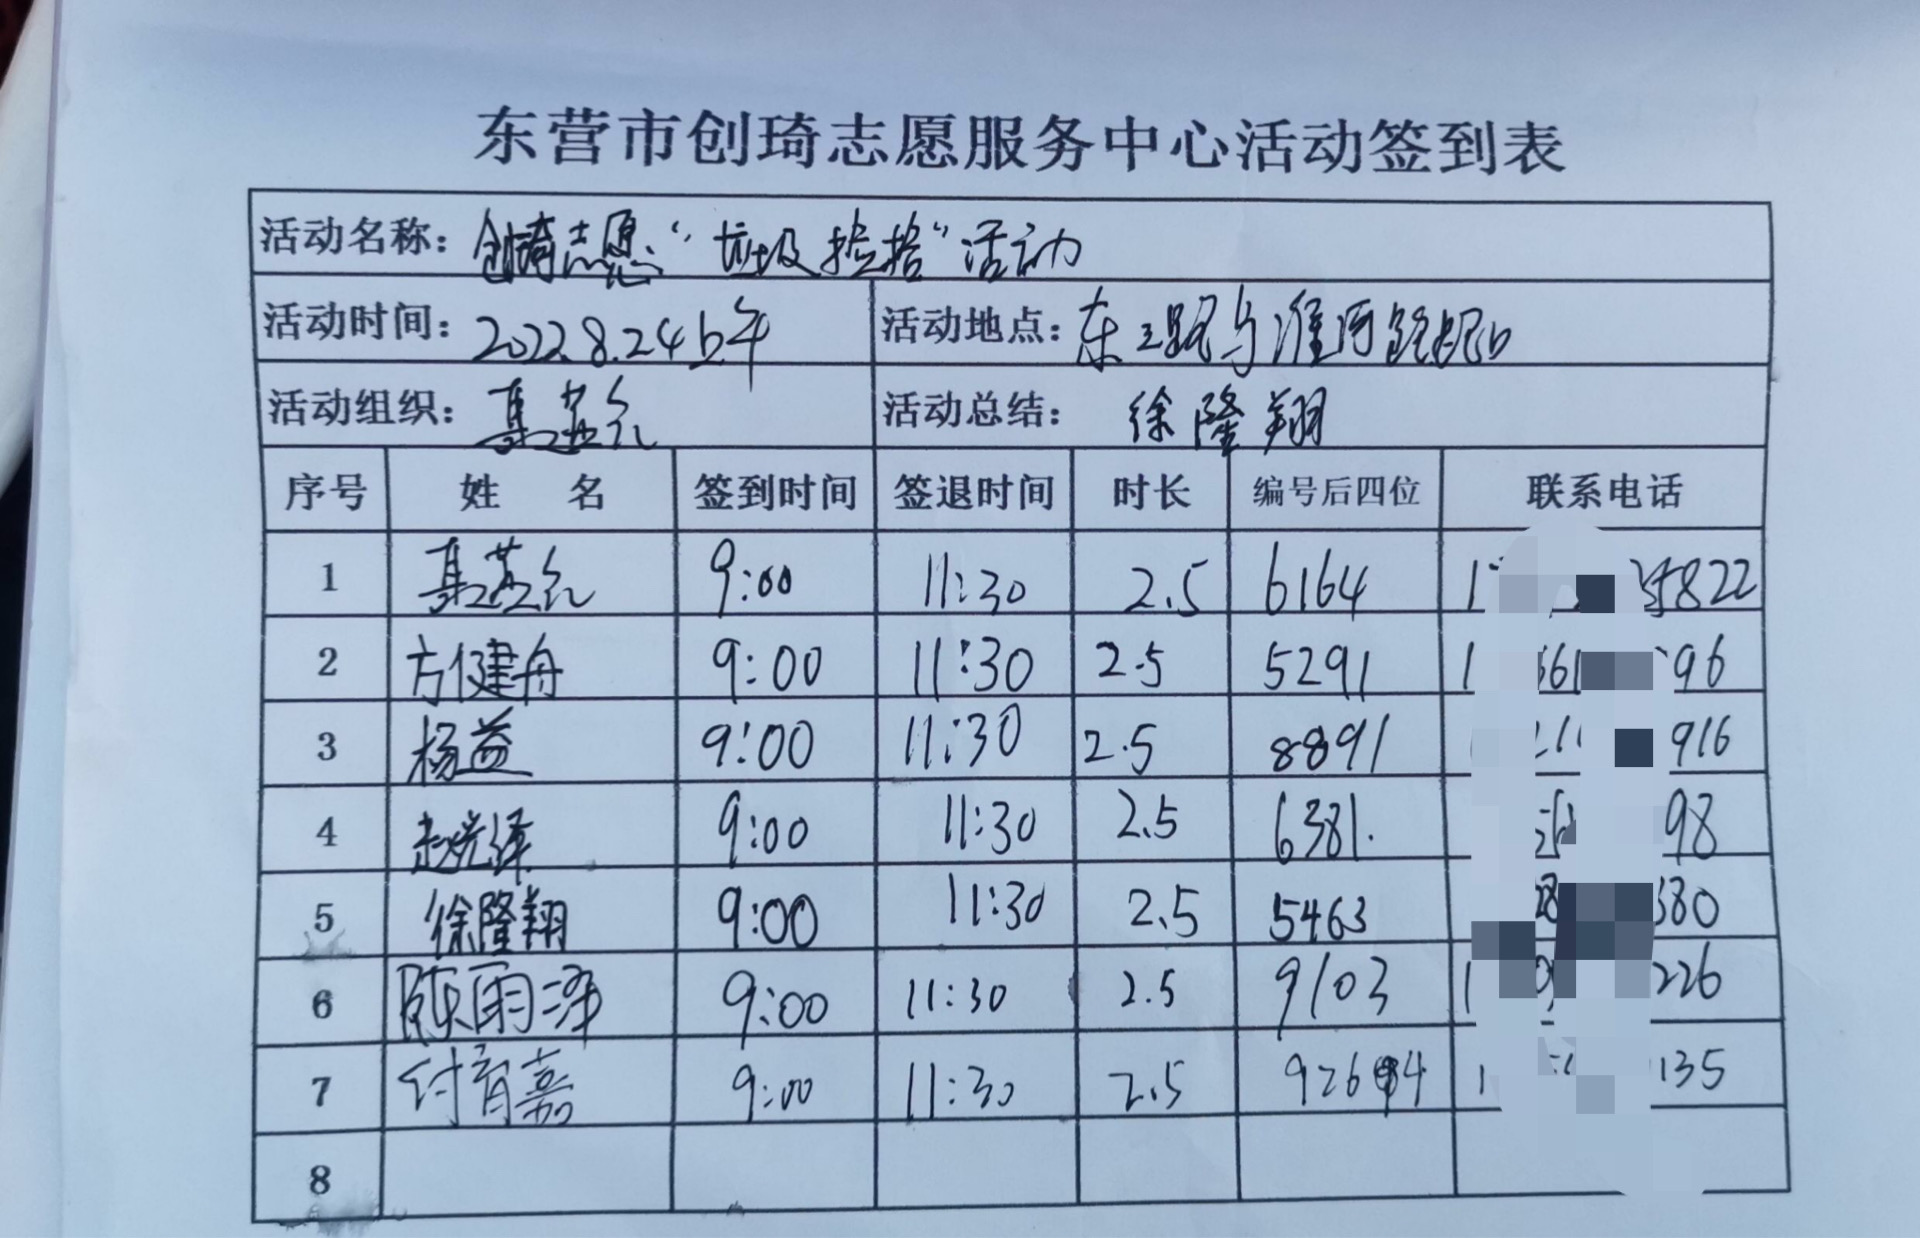 东营市创琦志愿服务中心活动签到表
活动名称：创琦志愿“垃圾捡拾”活动
活动时间：2022.8.24上午 活动地点：东二路与淮河路路口
活动组织： 活动总结：徐隆翔
序号 姓名 签到时间 签退时间 时长 编号后四位 联系电话
1 9:00 11:30 2.5 6164 5822
2 方健舟 9:00 11:30 2.5 5291 96
3 杨益 9:00 11:30 2.5 8891 916
4 9:00 11:30 2.5 6381. 98
5 徐隆翔 9:00 11:30 2.5 5463 380
6 陈雨泽 9:00 11:30 2.5 9103 226
7 付育嘉 9:00 11:30 2.5 135
8